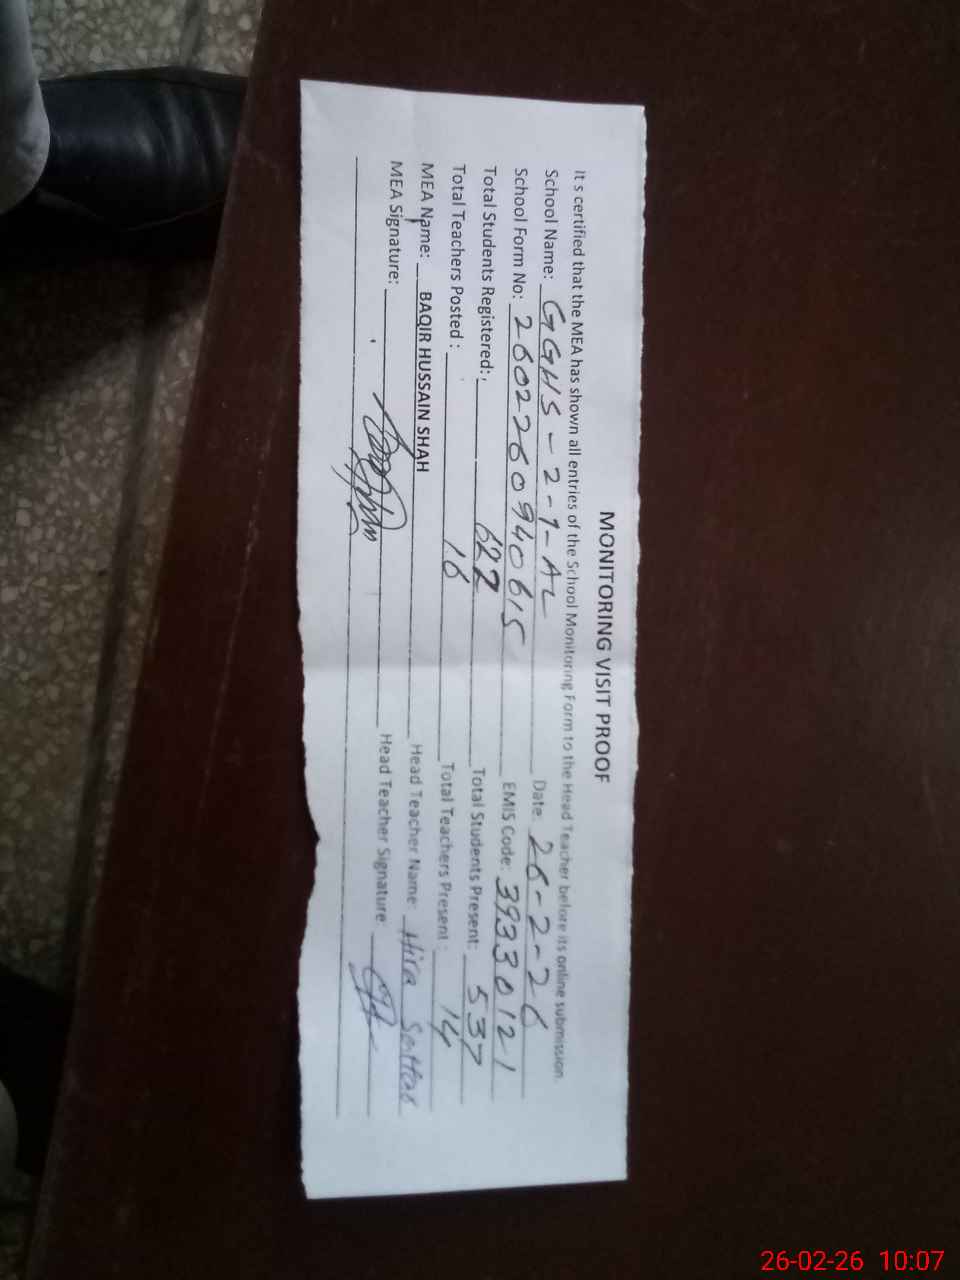 MONITORING VISIT PROOF
It s certified that the MEA has shown all entries of the School Monitoring Form to the Head Teacher before its online submission.
School Name: GGHS-2-1-AL Date: 26-2-26
School Form No: 2602260940615 EMIS Code: 39330121
Total Students Registered: 627 Total Students Present: 537
Total Teachers Posted : 16 Total Teachers Present : 14
MEA Name: BAQIR HUSSAIN SHAH Head Teacher Name: Hira Sattar
MEA Signature: Head Teacher Signature:
26-02-26 10:07